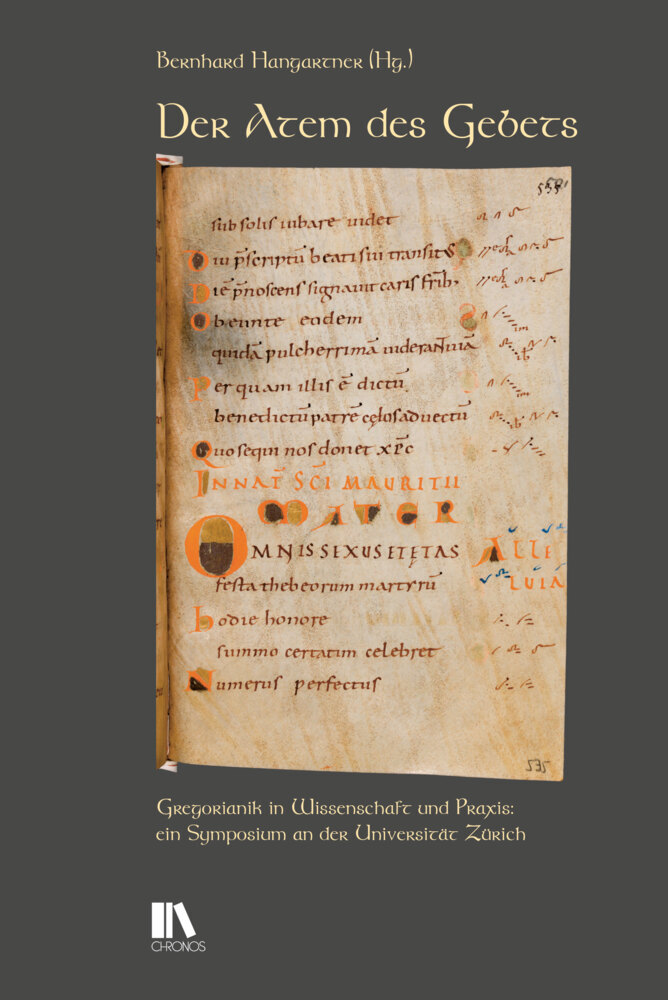 Bernhard Hangartner (Hg.)
Der Atem des Gebets
535
sub solis iubare uidet
Qui p̄scriptū beati sui transitū
Diē p̄noscens signauit caris frīb;
Obeunte eodem
quidā pulcherrimā uiderant uiā
Per quam illis ē dictū
benedictū patrē cęlos aduectū
Quo sequi nos donet xp̄c
IN NAT̄ SC̄I MAURITII
MATER
OMNIS SEXUS ET ĘTAS
ALLE
LUIA
festa thebeorum martyrū
hodie honore
summo certatim celebret
Numerus perfectus
535
Gregorianik in Wissenschaft und Praxis:
ein Symposium an der Universität Zürich
CHRONOS